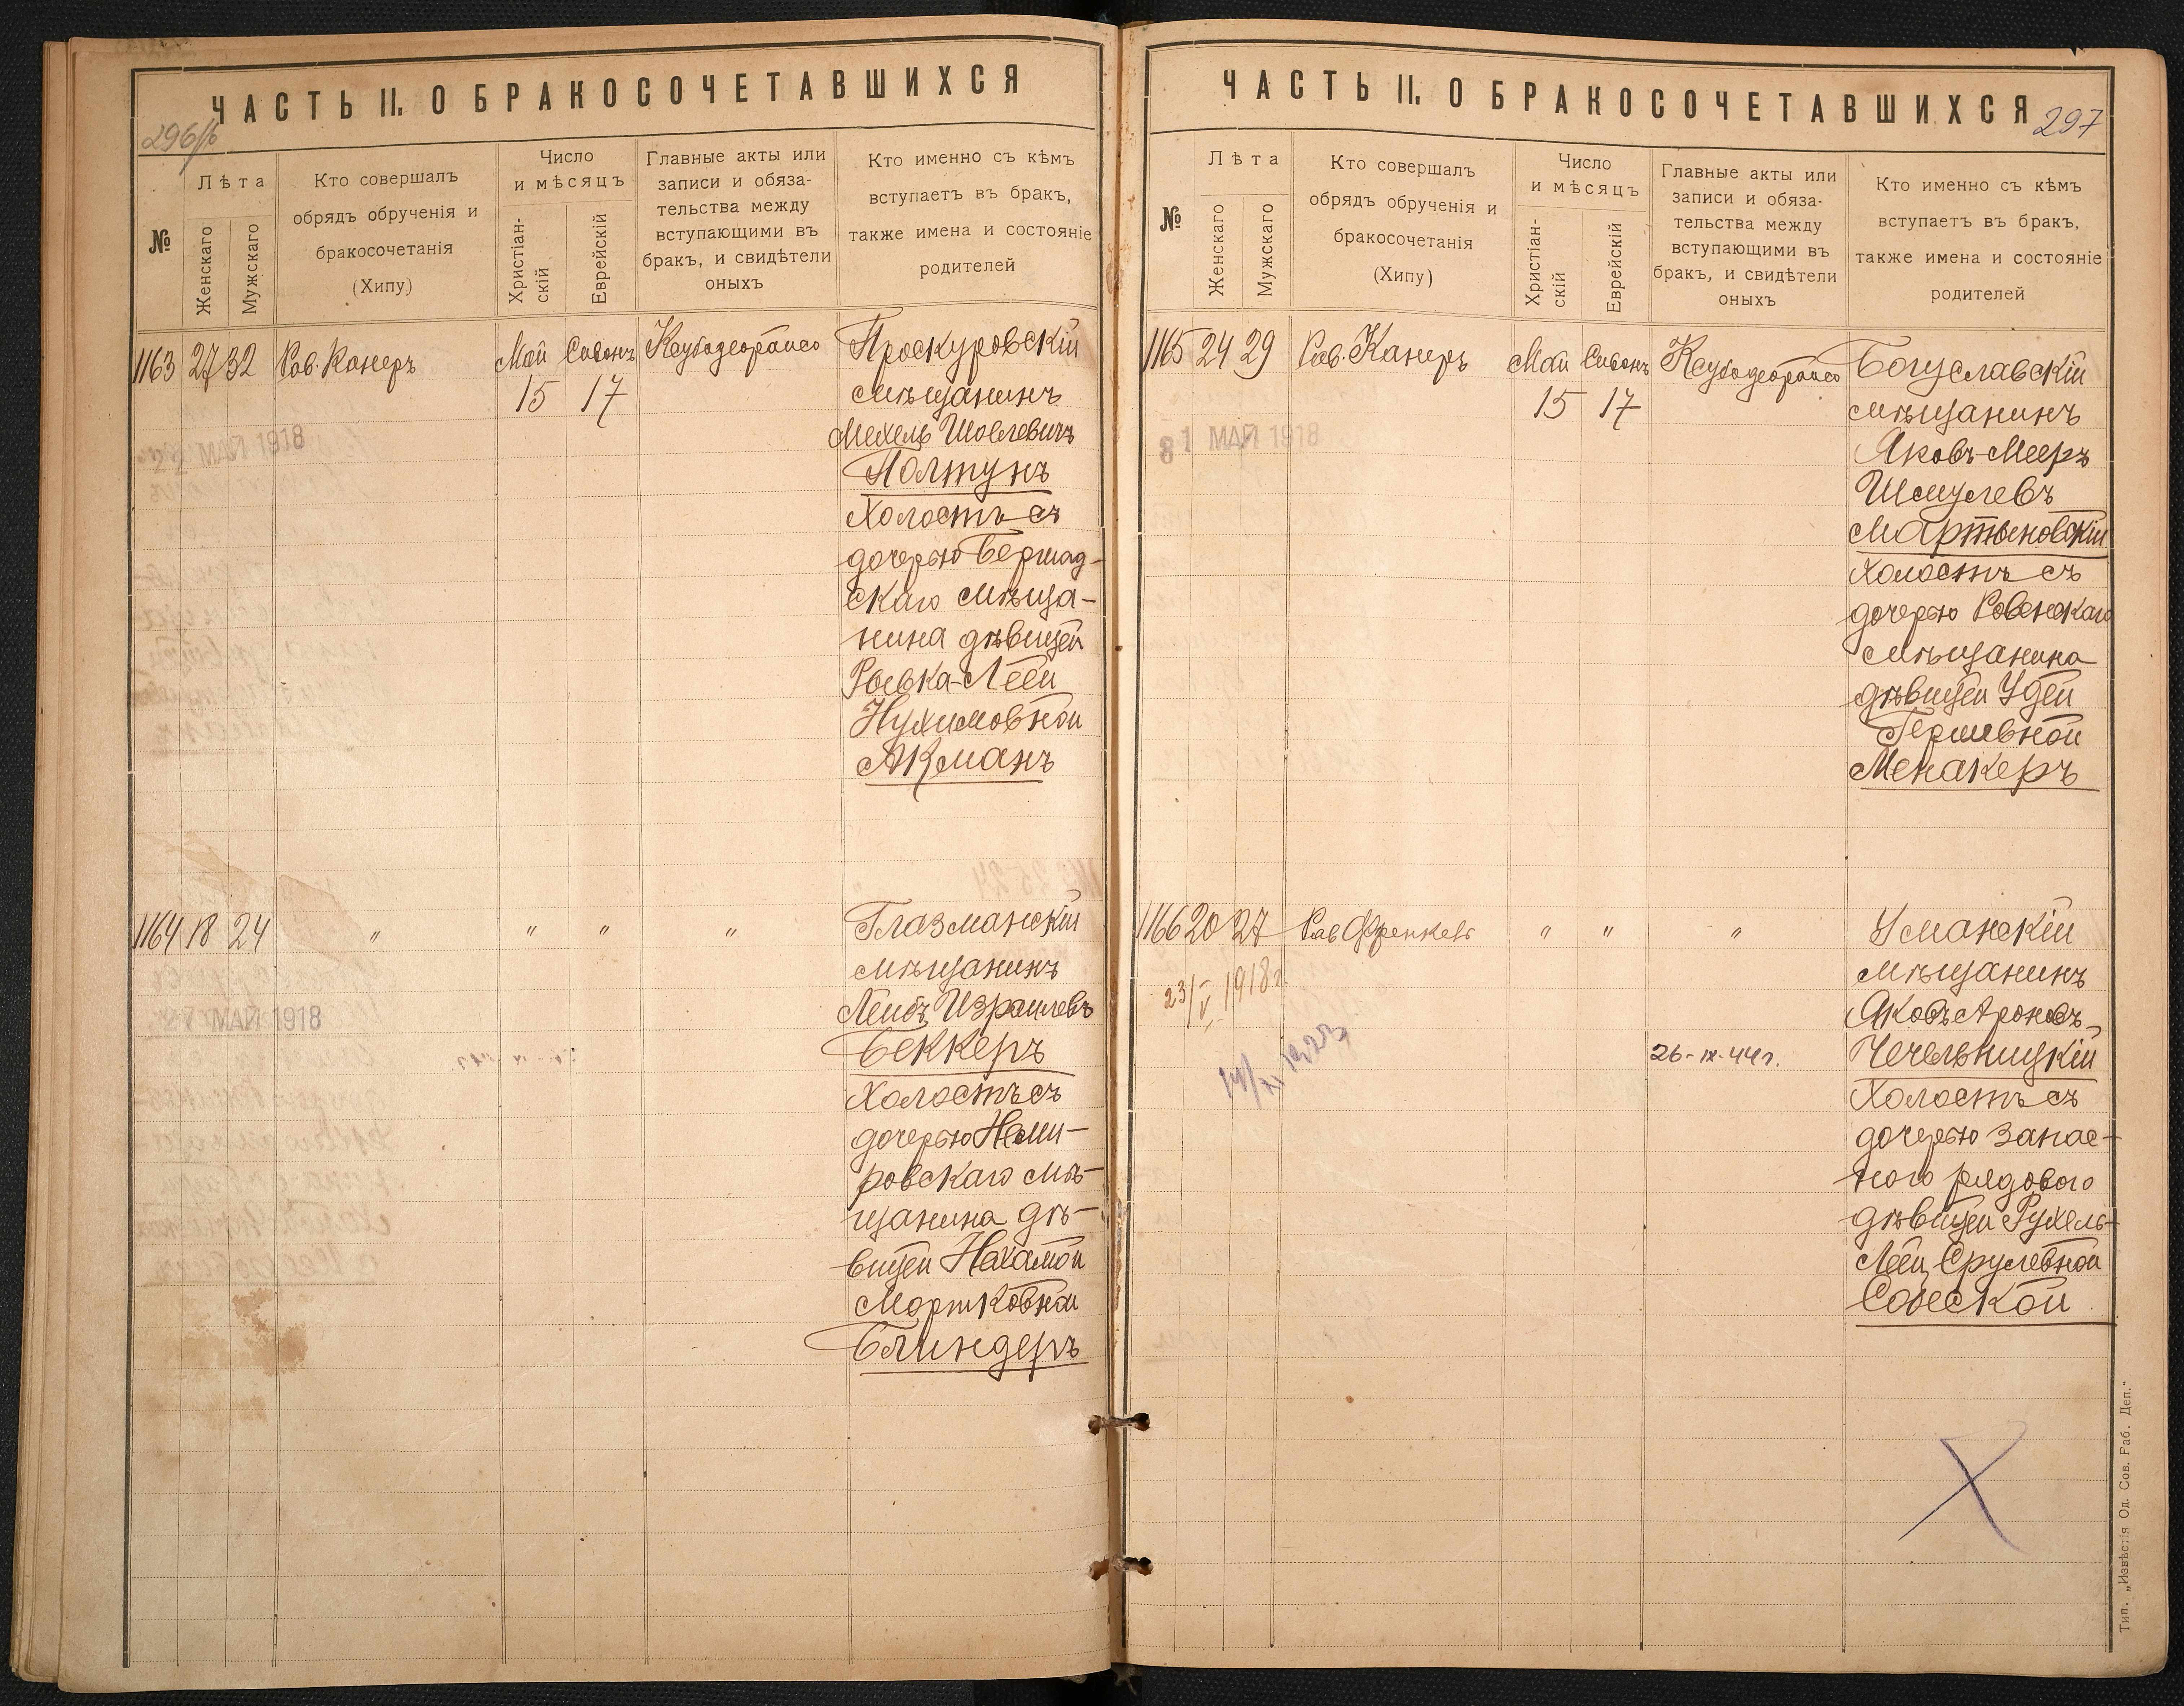 ЧАСТЬ II. О БРАКОСОЧЕТАВШИХСЯ
296/б
№
Лѣта
Женскаго
Мужскаго
Кто совершалъ
обрядъ обрученія и
бракосочетанія
(Хипу)
Число
и мѣсяцъ
Христіан-
скій
Еврейскій
Главные акты или
записи и обяза-
тельства между
вступающими въ
бракъ, и свидѣтели
оныхъ
Кто именно съ кѣмъ
вступаетъ въ бракъ,
также имена и состояніе
родителей
1163 27 32 Рав. Канеръ Май Сивонъ Проскуровскій
15 17 мѣщанинъ
Мехель Шовлевичъ
МАЙ 1918
Полтунъ
Холостъ съ
дочерью Бершад-
скаго мѣща-
нина дѣвицей
Ривка-Леей
Нухимовной
Акманъ
1164 18 24 " " " " Глазманскій
мѣщанинъ
Лейбъ Израилевъ
МАЙ 1918
Беккеръ
Холостъ съ
дочерью Неми-
ровскаго мѣ-
щанина дѣ-
вицей Нехамой
Мортковной
Блиндеръ
ЧАСТЬ II. О БРАКОСОЧЕТАВШИХСЯ
297
№
Лѣта
Женскаго
Мужскаго
Кто совершалъ
обрядъ обрученія и
бракосочетанія
(Хипу)
Число
и мѣсяцъ
Христіан-
скій
Еврейскій
Главные акты или
записи и обяза-
тельства между
вступающими въ
бракъ, и свидѣтели
оныхъ
Кто именно съ кѣмъ
вступаетъ въ бракъ,
также имена и состояніе
родителей
1165 24 29 Рав. Канеръ Май Сивонъ Богуславскій
15 17 мѣщанинъ
МАЙ 1918
Яковъ-Мееръ
Шмулевъ
Мартыновскій
Холостъ съ
дочерью Ровенскаго
мѣщанина
дѣвицей Удей
Гершевной
Менакеръ
1166 20 27 Рав Френкель " " " Уманскій
мѣщанинъ
23/V 1918 г.
Яковъ Ароновъ
26-IX-44 г.
Чечельницкій
Холостъ съ
дочерью запас-
ного рядового
дѣвицей Рухель-
Леей Срулевной
Собеской
Тип. „Извѣстія Од. Сов. Раб. Деп."